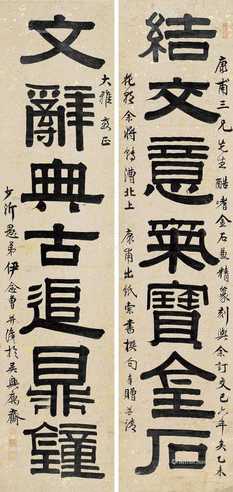 康甫三兄先生酷耆金石益精篆刻與余訂交已六年矣乙未
結交意樂寶金石
花朝余將轉漕北上 康甫出紙索書撰句奉贈並請
文辭典古追鼎鐘
大雅教正
少沂愚弟伊念曾並識於吳興寓齋